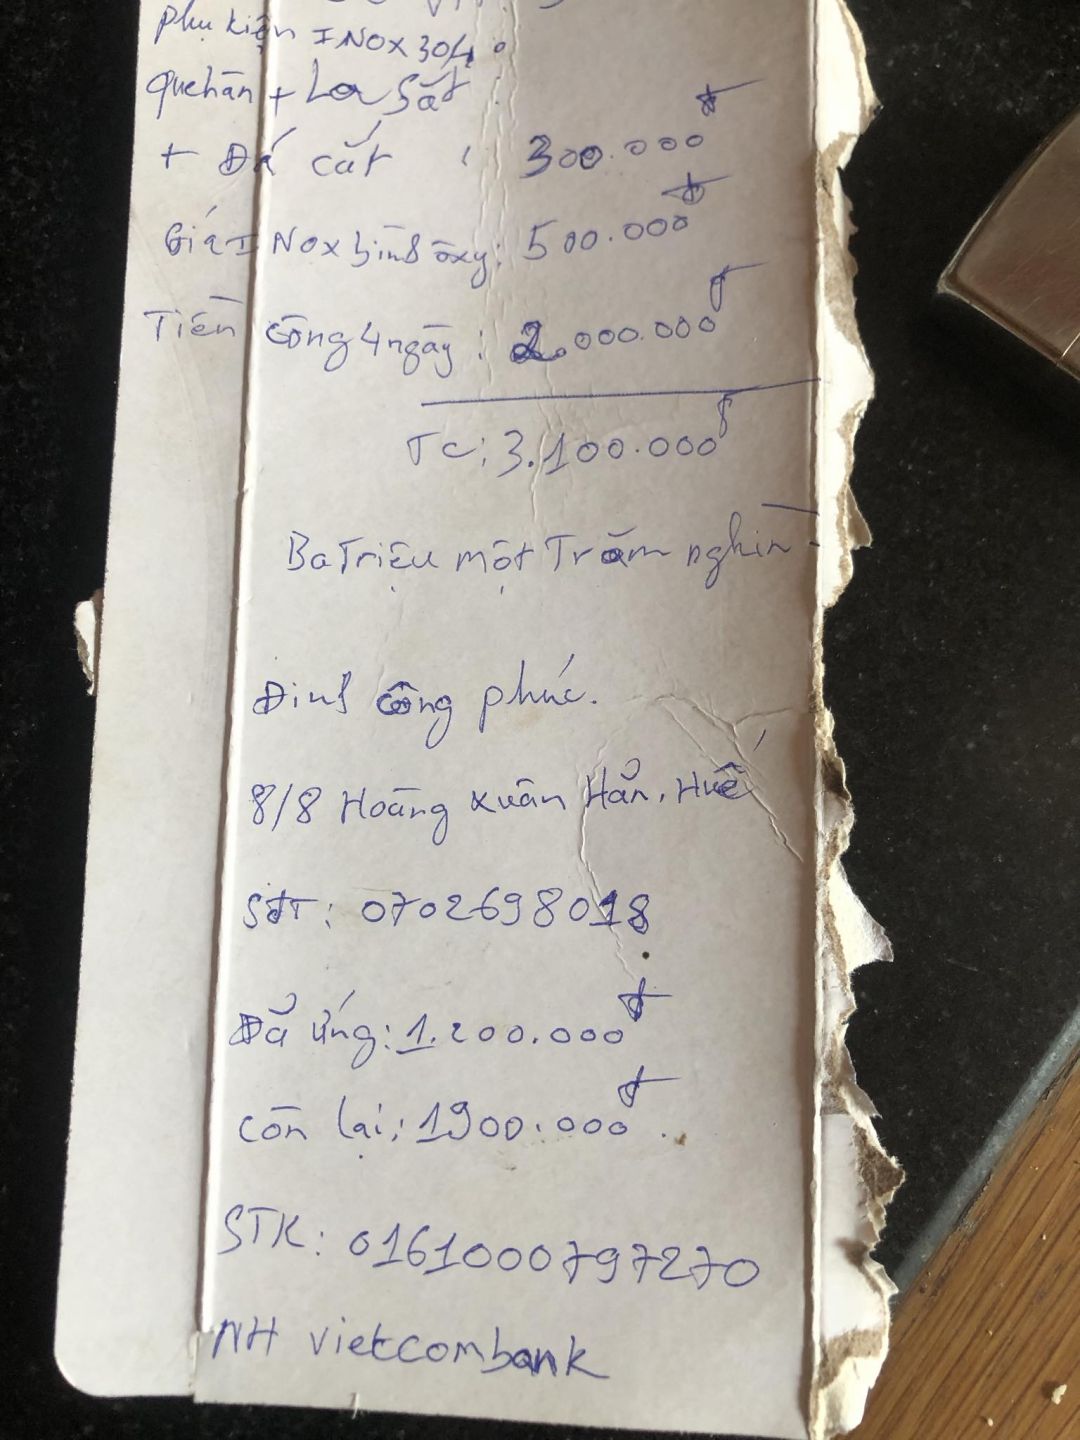 phụ kiện INOX 304
Que hàn + La Sắt :
+ Đá cắt : 300.000đ
Giá INOX bình ôxy: 500.000đ
Tiền công 4 ngày : 2.000.000đ
TC: 3.100.000đ
Ba Triệu một Trăm nghìn
Đinh công phúc.
8/8 Hoàng xuân Hãn. Huế
SĐT: 0702698018
Đã ứng: 1.200.000đ
còn lại: 1900.000đ.
STK: 0161000797270
NH vietcombank